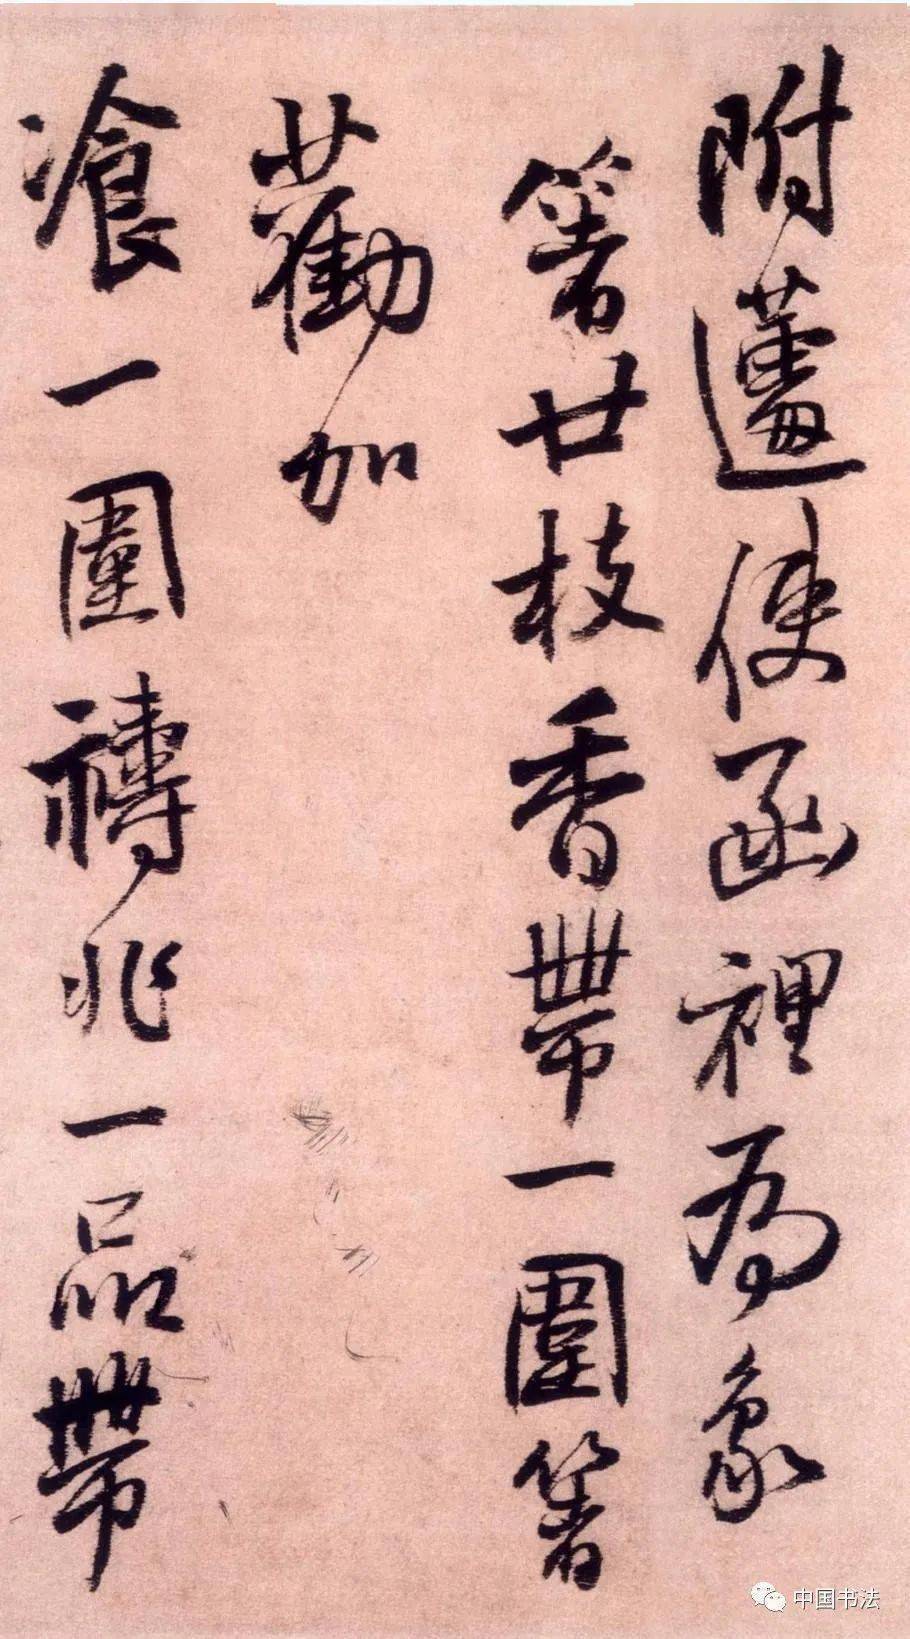 附蘧使函裡為象
箸廿枝香帶一圍箸
勸加
飡一圍禱兆一品帶
中国书法